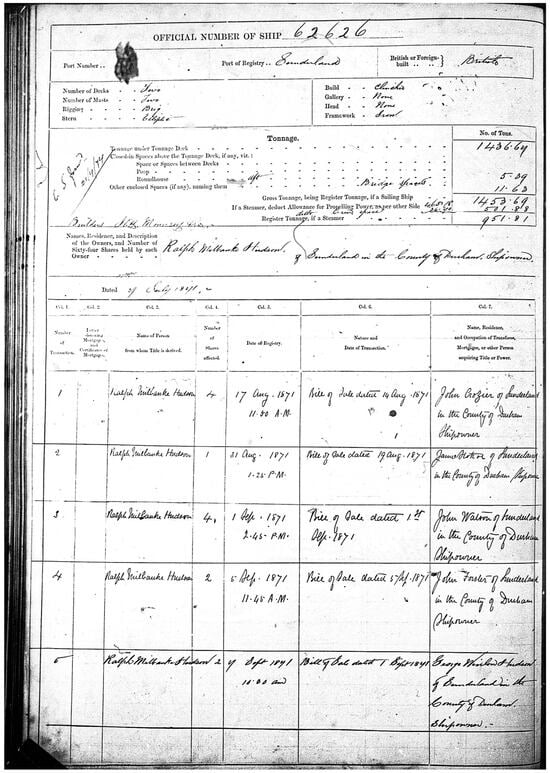 OFFICIAL NUMBER OF SHIP 62626
Port Number
Port of Registry Sunderland
British or Foreign-built
British
Number of Decks Two
Number of Masts Two
Rigging Brig
Stern
Build Clincher
Gallery None
Head None
Framework Iron
Tonnage.
No. of Tons.
Tonnage under Tonnage Deck 1436.67
Closed-in Spaces above the Tonnage Deck, if any, viz.:
Space or Spaces between Decks
Poop
Roundhouse aft 5.39
Other enclosed Spaces (if any), naming them Bridge Space 11.63
Gross Tonnage, being Register Tonnage, if a Sailing Ship 1453.69
If a Steamer, deduct Allowance for Propelling Power, as per other Side
Register Tonnage, if a Steamer 951.81
Names, Residence, and Description of the Owners, and Number of Sixty-four Shares held by each Owner
Ralph Milbanke Hudson
of Sunderland in the County of Durham, Shipowner
Dated July 1871
Col. 1. Col. 2. Col. 3. Col. 4. Col. 5. Col. 6. Col. 7.
Number of Transaction.
Letter denoting Mortgages, and Certificates of Mortgages.
Name of Person from whom Title is derived.
Number of Shares affected.
Date of Registry.
Nature and Date of Transaction.
Name, Residence, and Occupation of Transferee, Mortgagee, or other Person acquiring Title or Power.
1 Ralph Milbanke Hudson 4 17 Aug. 1871 Bill of Sale dated 14 Aug. 1871 John Crozier of Sunderland
11.50 A.M. in the County of Durham
Shipowner
2 Ralph Milbanke Hudson 1 21 Aug. 1871 Bill of Sale dated 19 Aug. 1871 James of Sunderland
1.25 P.M. in the County of Durham Shipowner
3 Ralph Milbanke Hudson 4 1 Sep. 1871 Bill of Sale dated 1st John Watson of Sunderland
2.45 P.M. Sep. 1871 in the County of Durham
Shipowner
4 Ralph Milbanke Hudson 2 5 Sep. 1871 Bill of Sale dated 5 Sep. 1871 John Forster of Sunderland
11.45 A.M. in the County of Durham
Shipowner
5 Ralph Milbanke Hudson 2 Sept 1871 Bill of Sale dated 1 Sept 1871 George Hudson
10.00 am of Sunderland in the
County of Durham
Shipowner